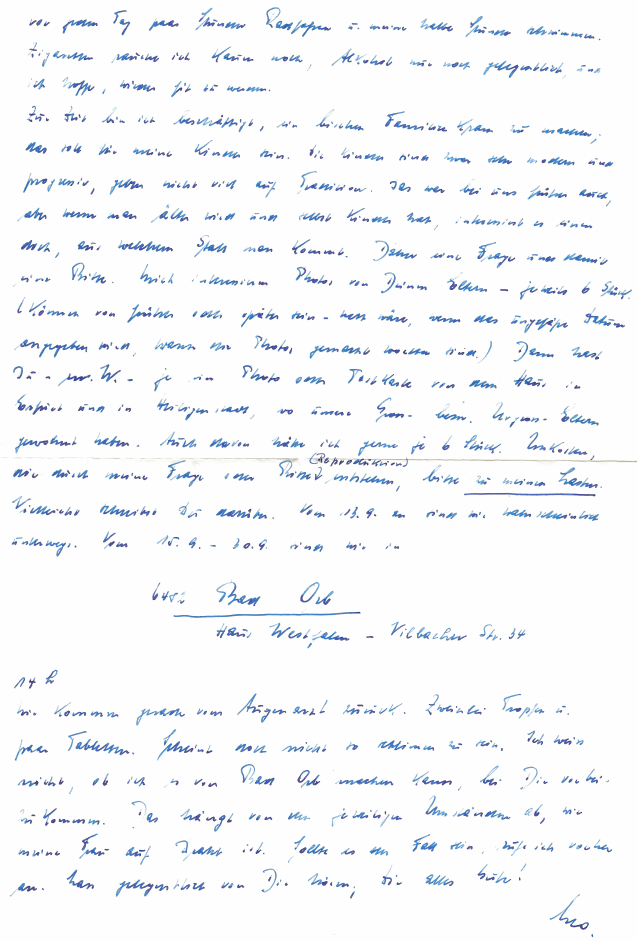 vor jedem Tag paar Stunden Radfahren u. meine halbe Stunde schwimmen.
Zigaretten rauche ich kaum noch, Alkohol nur noch gelegentlich, und
ich hoffe, wieder fit zu werden.
Zur Zeit bin ich beschäftigt, ein bischen Familienkram zu machen,
das soll für meine Kinder sein. Die Kinder sind zwar sehr modern und
progressiv, geben nicht viel auf Tradition. Das war bei uns früher auch,
aber wenn man älter wird und selbst Kinder hat, interessiert es einen
doch, aus welchem Stall man kommt. Daher eine Frage und damit
eine Bitte. Mich interessieren Photos von Deinen Eltern – jeweils 6 Stück.
(Können von früher oder später sein – nett wäre, wenn das ungefähre Datum
angegeben wird, wann die Photos gemacht worden sind.) Dann hast
Du – m. W. – je ein Photo oder Postkarte von dem Haus in
Erfurt und in Heiligenstadt, wo unsere Gross- bezw. Urgross-Eltern
gewohnt haben. Auch davon hätte ich gerne je 6 Stück. Unkosten,
(Reproduktion)
die durch meine Frage oder Bitte entstehen, bitte zu meinen Lasten.
Vielleicht schreibst Du darüber. Vom 13.9. an sind wir wahrscheinlich
unterwegs. Vom 15.9. – 30.9. sind wir in
Bad Orb
Haus Westfalen – Vilbacher Str. 34
14 h
Wir kommen gerade vom Augenarzt zurück. Zweierlei Tropfen u.
paar Tabletten. Scheint doch nicht so schlimm zu sein. Ich weiss
nicht, ob ich es von Bad Orb machen kann, bei Dir vorbei-
zukommen. Das hängt von den jeweiligen Umständen ab, wie
meine Frau auf Draht ist. Sollte es der Fall sein, rufe ich vorher
an. Lass gelegentlich von Dir hören, Dir alles Gute!